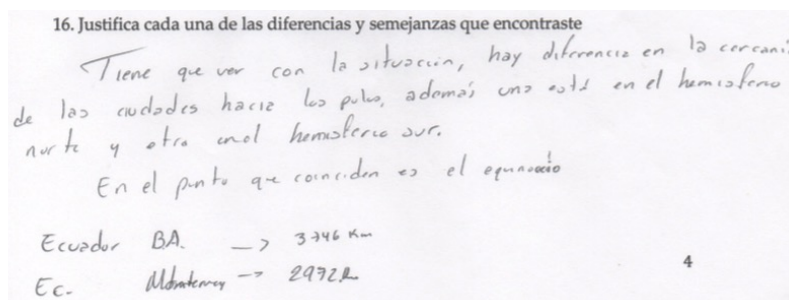 16. Justifica cada una de las diferencias y semejanzas que encontraste
Tiene que ver con la situación, hay diferencia en la cercaní
de las ciudades hacia los polos, además una está en el hemisferio
norte y otra en el hemisferio sur.
En el punto que coinciden es el equinoccio
Ecuador BA. → 3746 Km
Ec. Monterrey → 2972
4